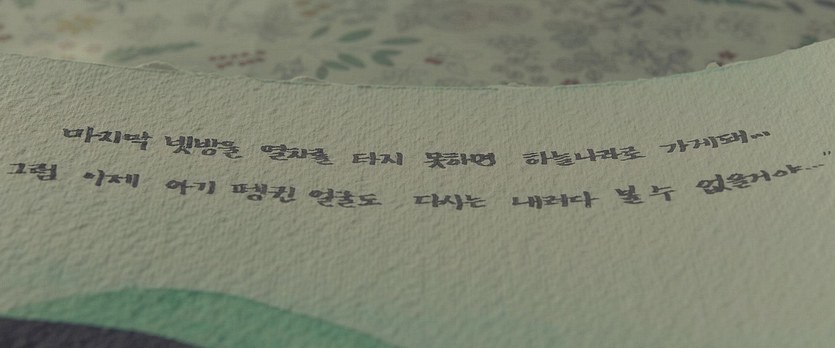 마지막 빗방울 열차를 타지 못하면 하늘나라로 가게돼...
그럼 이제 아기 펭귄 얼굴도 다시는 내려다 볼 수 없을거야..."